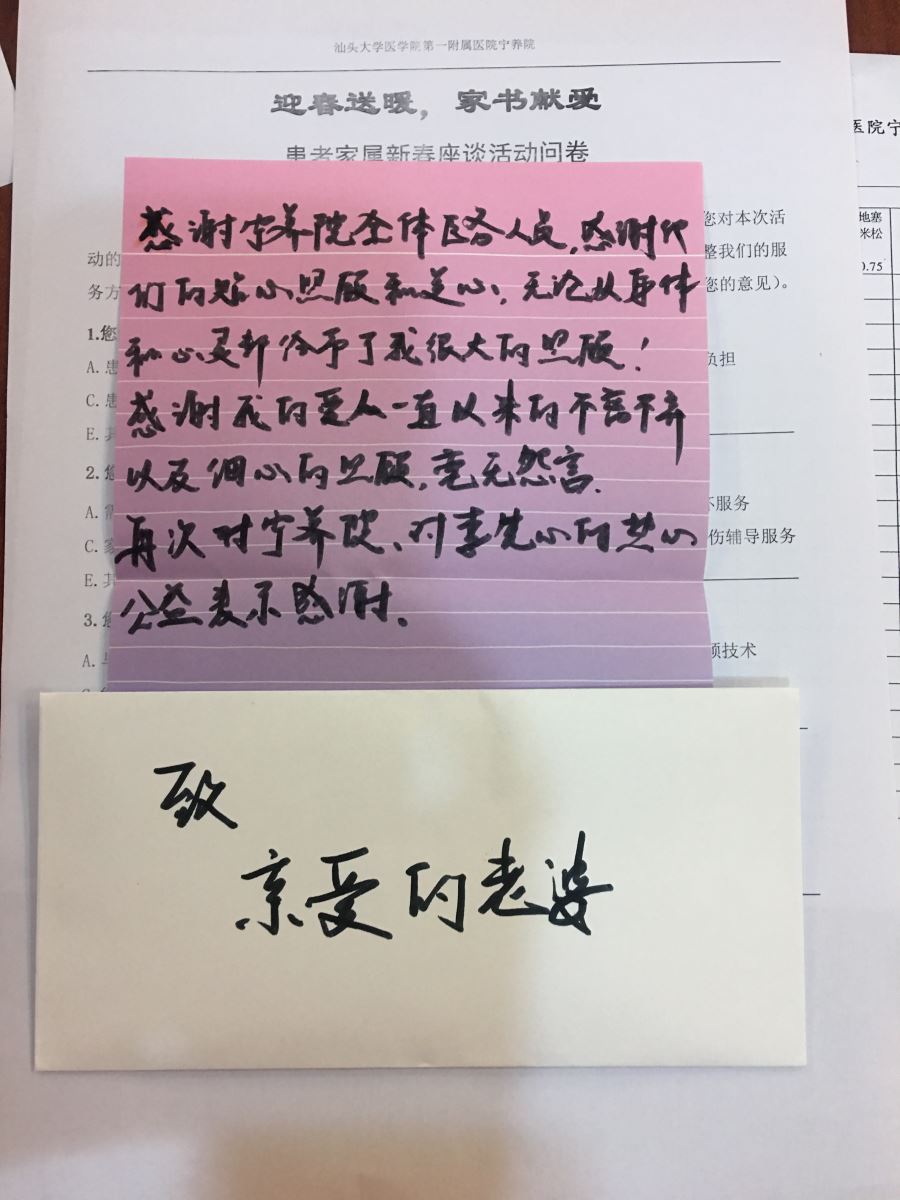 汕头大学医学院第一附属医院宁养院
迎春送暖，家书献爱
患者家属新春座谈活动问卷
医院宁
感谢宁养院全体医务人员,感谢你
们的贴心照顾和关心,无论从身体
和心灵都给予了我很大的照顾!
感谢我的爱人一直以来的不离不弃
以及细心的照顾,毫无怨言.
再次对宁养院、对李先生的热心
公益表示感谢.
您对本次活
动的 整我们的服
务方 您的意见）。
地塞
米松
0.75
1.您
A.患 负担
C.患
E.其
2.您
A. 服务
C.家 伤辅导服务
E.其
3.您
A.与 项技术
致
亲爱的老婆